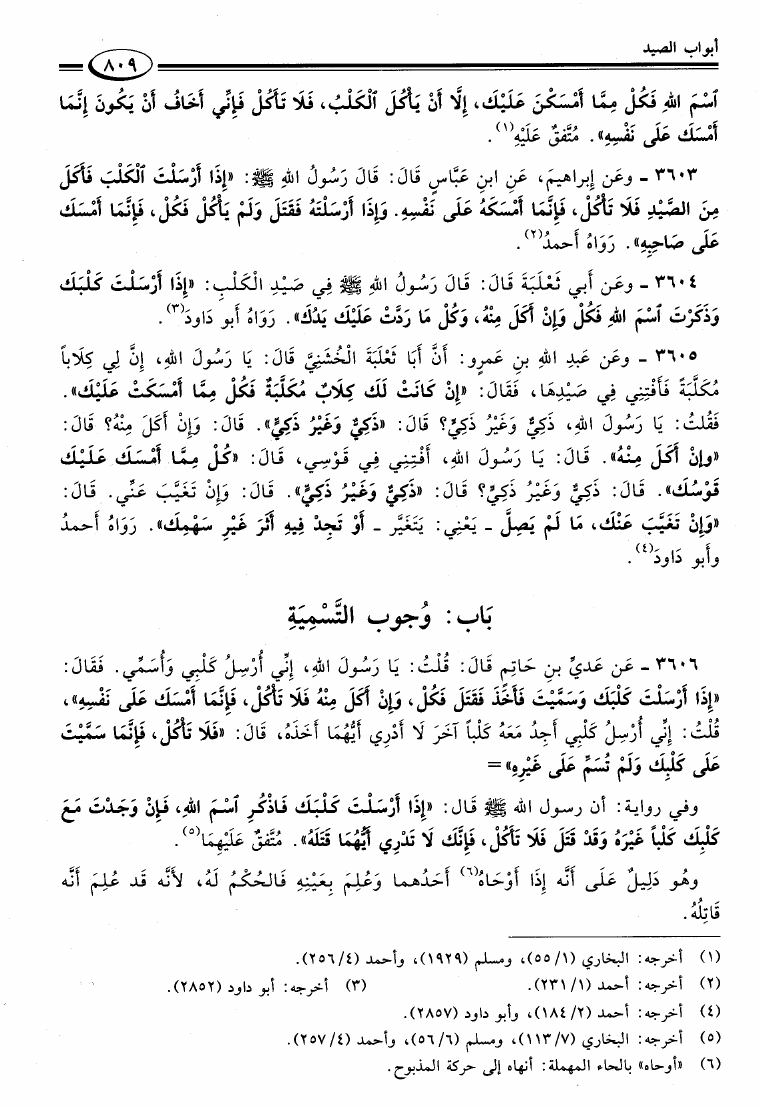 أبواب الصيد
٨٠٩
ٱسْمَ اللهِ فَكُلْ مِمَّا أَمْسَكْنَ عَلَيْكَ، إِلَّا أَنْ يَأْكُلَ ٱلْكَلْبُ، فَلَا تَأْكُلْ فَإِنِّي أَخَافُ أَنْ يَكُونَ إِنَّمَا
أَمْسَكَ عَلَى نَفْسِهِ». مُتَّفقٌ عَلَيْهِ(١).
٣٦٠٣ - وعَن إبراهيمَ، عَنِ ابنِ عَبَّاسٍ قَالَ: قَالَ رَسُولُ اللهِ ﷺ: «إِذَا أَرْسَلْتَ ٱلْكَلْبَ فَأَكَلَ
مِنَ الصَّيْدِ فَلَا تَأْكُلْ، فَإِنَّمَا أَمْسَكَهُ عَلَى نَفْسِهِ. وَإِذَا أَرْسَلْتَهُ فَقَتَلَ وَلَمْ يَأْكُلْ فَكُلْ، فَإِنَّمَا أَمْسَكَ
عَلَى صَاحِبِهِ». رَوَاهُ أَحمدُ(٢).
٣٦٠٤ - وعَن أَبي ثَعْلَبَةَ قَالَ: قَالَ رَسُولُ اللهِ ﷺ فِي صَيْدِ الكَلْبِ: «إِذَا أَرْسَلْتَ كَلْبَكَ
وَذَكَرْتَ ٱسْمَ اللهِ فَكُلْ وَإِنْ أَكَلَ مِنْهُ، وَكُلْ مَا رَدَّتْ عَلَيْكَ يَدُكَ». رَوَاهُ أَبو دَاودَ(٣).
٣٦٠٥ - وعَن عَبدِ اللهِ بنِ عَمرٍو: أَنَّ أَبَا ثَعْلَبَةَ الْخُشَنِيَّ قَالَ: يَا رَسُولَ اللهِ، إِنَّ لِي كِلَاباً
مُكَلَّبَةً فَأَفْتِنِي فِي صَيْدِهَا، فَقَالَ: «إِنْ كَانَتْ لَكَ كِلَابٌ مُكَلَّبَةٌ فَكُلْ مِمَّا أَمْسَكَتْ عَلَيْكَ».
فَقُلتُ: يَا رَسُولَ اللهِ، ذَكِيٌّ وَغَيْرُ ذَكِيٍّ؟ قَالَ: «ذَكِيٌّ وَغَيْرُ ذَكِيٍّ». قَالَ: وَإِنْ أَكَلَ مِنْهُ؟ قَالَ:
«وإنْ أَكَلَ مِنْهُ». قَالَ: يَا رَسُولَ اللهِ، أَفْتِنِي فِي قَوْسِي، قَالَ: «كُلْ مِمَّا أَمْسَكَ عَلَيْكَ
قَوْسُكَ». قَالَ: ذَكِيٌّ وَغَيْرُ ذَكِيٍّ؟ قَالَ: «ذَكِيٌّ وَغَيْرُ ذَكِيٍّ». قَالَ: وَإِنْ تَغَيَّبَ عَنِّي. قَالَ:
«وَإِنْ تَغَيَّبَ عَنْكَ، مَا لَمْ يَصِلَّ - يَعْنِي: يَتَغَيَّر - أَوْ تَجِدْ فِيهِ أَثَرَ غَيْرِ سَهْمِكَ». رَوَاهُ أَحمدُ
وأَبو دَاودَ(٤).
بَاب: وُجوب التَّسْمِيَةِ
٣٦٠٦ - عَن عَديِّ بنِ حَاتِمٍ قَالَ: قُلْتُ: يَا رَسُولَ اللهِ، إِنِّي أُرْسِلُ كَلْبِي وَأُسَمِّي. فَقَالَ:
«إِذَا أَرْسَلْتَ كَلْبَكَ وَسَمَّيْتَ فَأَخَذَ فَقَتَلَ فَكُلْ، وَإِنْ أَكَلَ مِنْهُ فَلَا تَأْكُلْ، فَإِنَّمَا أَمْسَكَ عَلَى نَفْسِهِ»،
قُلْتُ: إِنِّي أُرْسِلُ كَلْبِي أَجِدُ مَعَهُ كَلْباً آخَرَ لَا أَدْرِي أَيُّهُمَا أَخَذَهُ، قَالَ: «فَلَا تَأْكُلْ، فَإِنَّمَا سَمَّيْتَ
عَلَى كَلْبِكَ وَلَمْ تُسَمِّ عَلَى غَيْرِهِ» =
وفي رواية: أن رسول الله ﷺ قال: «إِذَا أَرْسَلْتَ كَلْبَكَ فَاذْكُرِ ٱسْمَ اللهِ، فَإِنْ وَجَدْتَ مَعَ
كَلْبِكَ كَلْباً غَيْرَهُ وَقَدْ قَتَلَ فَلَا تَأْكُلْ، فَإِنَّكَ لَا تَدْرِي أَيُّهُمَا قَتَلَهُ». مُتَّفقٌ عَلَيْهِمَا(٥).
وهُو دَلِيلٌ عَلَى أَنَّه إِذَا أَوْحَاهُ(٦) أَحَدُهما وَعُلِمَ بِعَيْنِهِ فَالحُكْمُ لَهُ، لأَنَّه قَد عُلِمَ أَنَّه
قَاتِلُهُ.
(١) أخرجه: البخاري (٥٥/١)، ومسلم (١٩٢٩)، وأحمد (٢٥٦/٤).
(٢) أخرجه: أحمد (٢٣١/١). (٣) أخرجه: أبو داود (٢٨٥٢).
(٤) أخرجه: أحمد (١٨٤/٢)، وأبو داود (٢٨٥٧).
(٥) أخرجه: البخاري (١١٣/٧)، ومسلم (٥٦/٦)، وأحمد (٢٥٧/٤).
(٦) «أوحاه» بالحاء المهملة: أنهاه إلى حركة المذبوح.